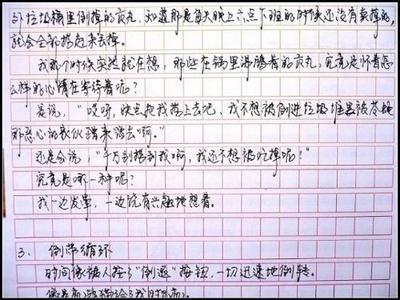 往垃圾桶里倒掉的贡丸,知道那是每天晚上六点下班的时候还没有卖掉的,
就会全部捞起来丢掉。
我那个时候突然就在想,那些在锅里沸腾着的贡丸,究竟是怀着怎
么样的心情在等待着呢?
是说,“哎呀,快点把我捞上去吧,我不想被倒进垃圾
那恶心的
还是会说,“千万别捞到我啊,我还不想被吃掉呢!”
究竟是哪一种呢?
我一边发呆,一边饶有兴趣地想着。
3. 倒带循环
时间像被人按了“倒退”按钮,一切迅速地倒转。